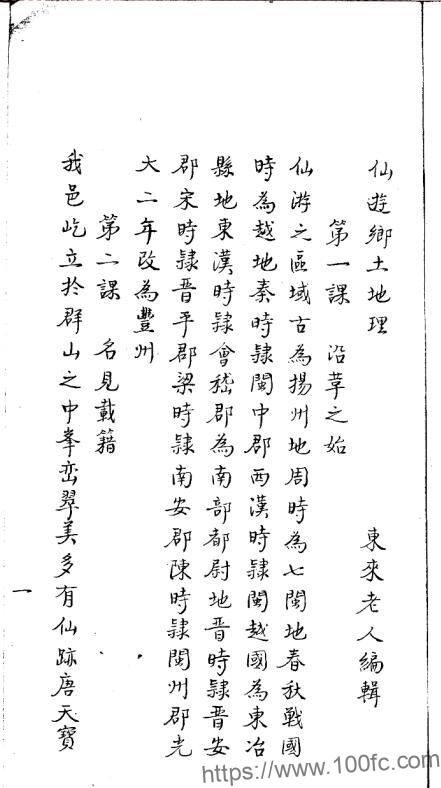 仙遊鄉土地理 東來老人編輯
第一課 沿革之始
仙游之區域古為揚州地周時為七閩地春秋戰國
時為越地秦時隸閩中郡西漢時隸閩越國為東冶
縣地東漢時隸會嵇郡為南部都尉地晉時隸晉安
郡宋時隸晉平郡梁時隸南安郡陳時隸閩州郡光
大二年改為豐州
第二課 名見載籍
我邑屹立於群山之中峯巒翠美多有仙跡唐天寶
一
https://www.100fc.com